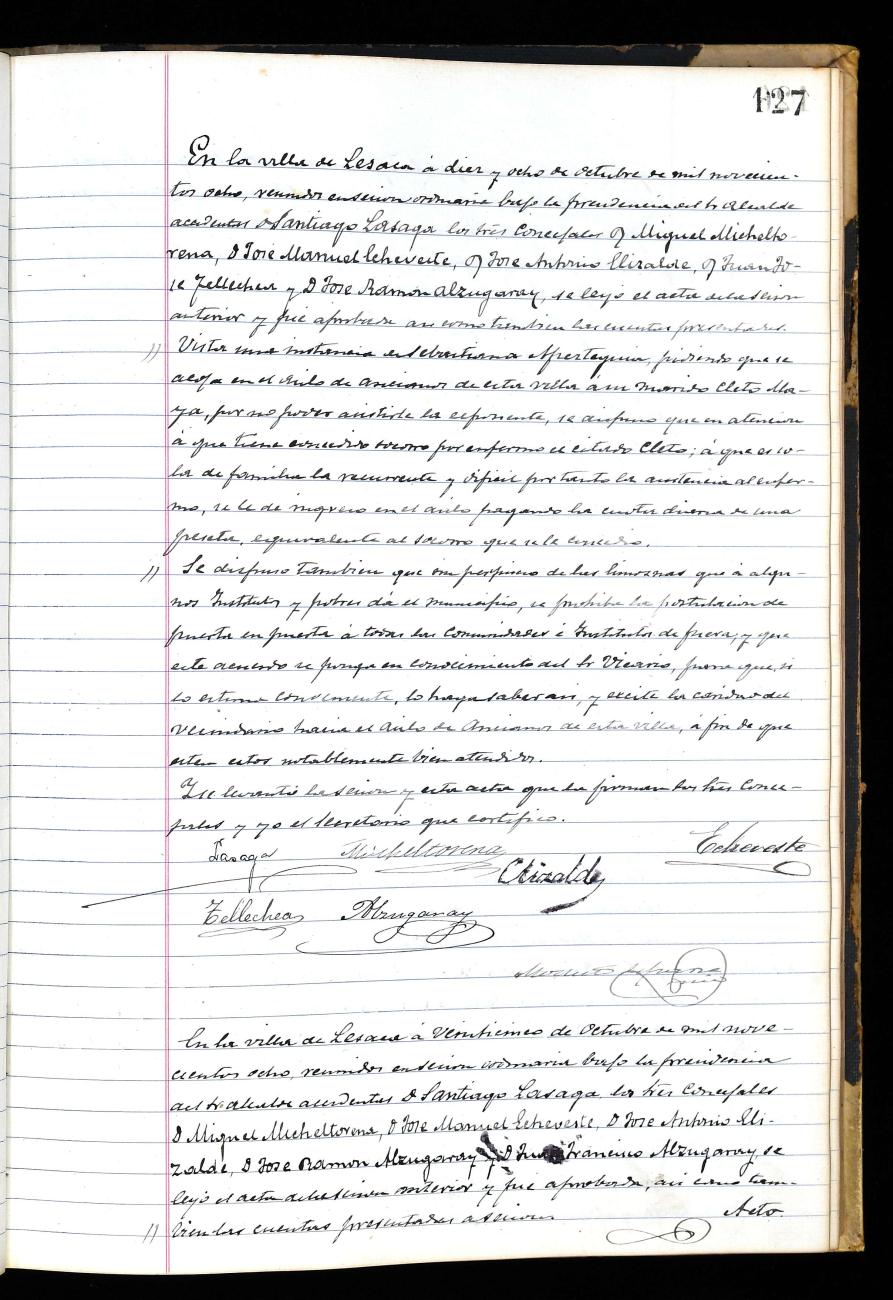 127
En la villa de Lesaca á diez y ocho de Octubre de mil novecien-
tos ocho, reunidos en sesion ordinaria bajo la presidencia del Sr Alcalde
accidental D Santiago Lasaga los Sres Concejales D Miguel Michelto-
rena, D José Manuel Echeveste, D José Antonio Elizalde, D Juan Jo-
se Tellechea y D José Ramon Alzugaray, se leyó el acta de la sesion
anterior y fué aprobada asi como tambien las cuentas presentadas.
" Vista una instancia de Sebastiana Aperteguia, pidiendo que se
acoja en el Asilo de ancianos de esta villa á su marido Cleto Ma-
ya, por no poder asistirle la exponente, se dispuso que en atencion
á que tiene concedido socorro por enfermo el citado Cleto; á que es so-
la de familia la recurrente y dificil por tanto la asistencia al enfer-
mo, se le dé ingreso en el asilo pagando la cuota diaria de una
peseta, equivalente al socorro que se le concedio.
" Se dispuso tambien que sin perjuicio de las limosnas que á algu-
nos Institutos y pobres dá el municipio, se prohiba la postulacion de
puerta en puerta á todas las Comunidades é Institutos de fuera; y que
este acuerdo se ponga en conocimiento del Sr Vicario, para que, si
lo estima conveniente, lo haga saber asi, y excite la caridad del
vecindario hacia el Asilo de Ancianos de esta villa, á fin de que
esten estos notablemente bien atendidos.
Y se levantó la sesion y esta acta que la firman los Sres Conce-
jales y yo el Secretario que certifico.
Lasaga Micheltorena Elizalde Echeveste
Tellechea Alzugaray
En la villa de Lesaca á veinticinco de Octubre de mil nove-
cientos ocho, reunidos en sesion ordinaria bajo la presidencia
del Sr alcalde accidental D Santiago Lasaga los Sres Concejales
D Miguel Micheltorena, D José Manuel Echeveste, D José Antonio Eli-
zalde, D José Ramon Alzugaray y D Juan Francisco Alzugaray, se
leyó el acta de la sesion anterior y fué aprobada, asi como tam-
" bien las cuentas presentadas a sesion. Acto